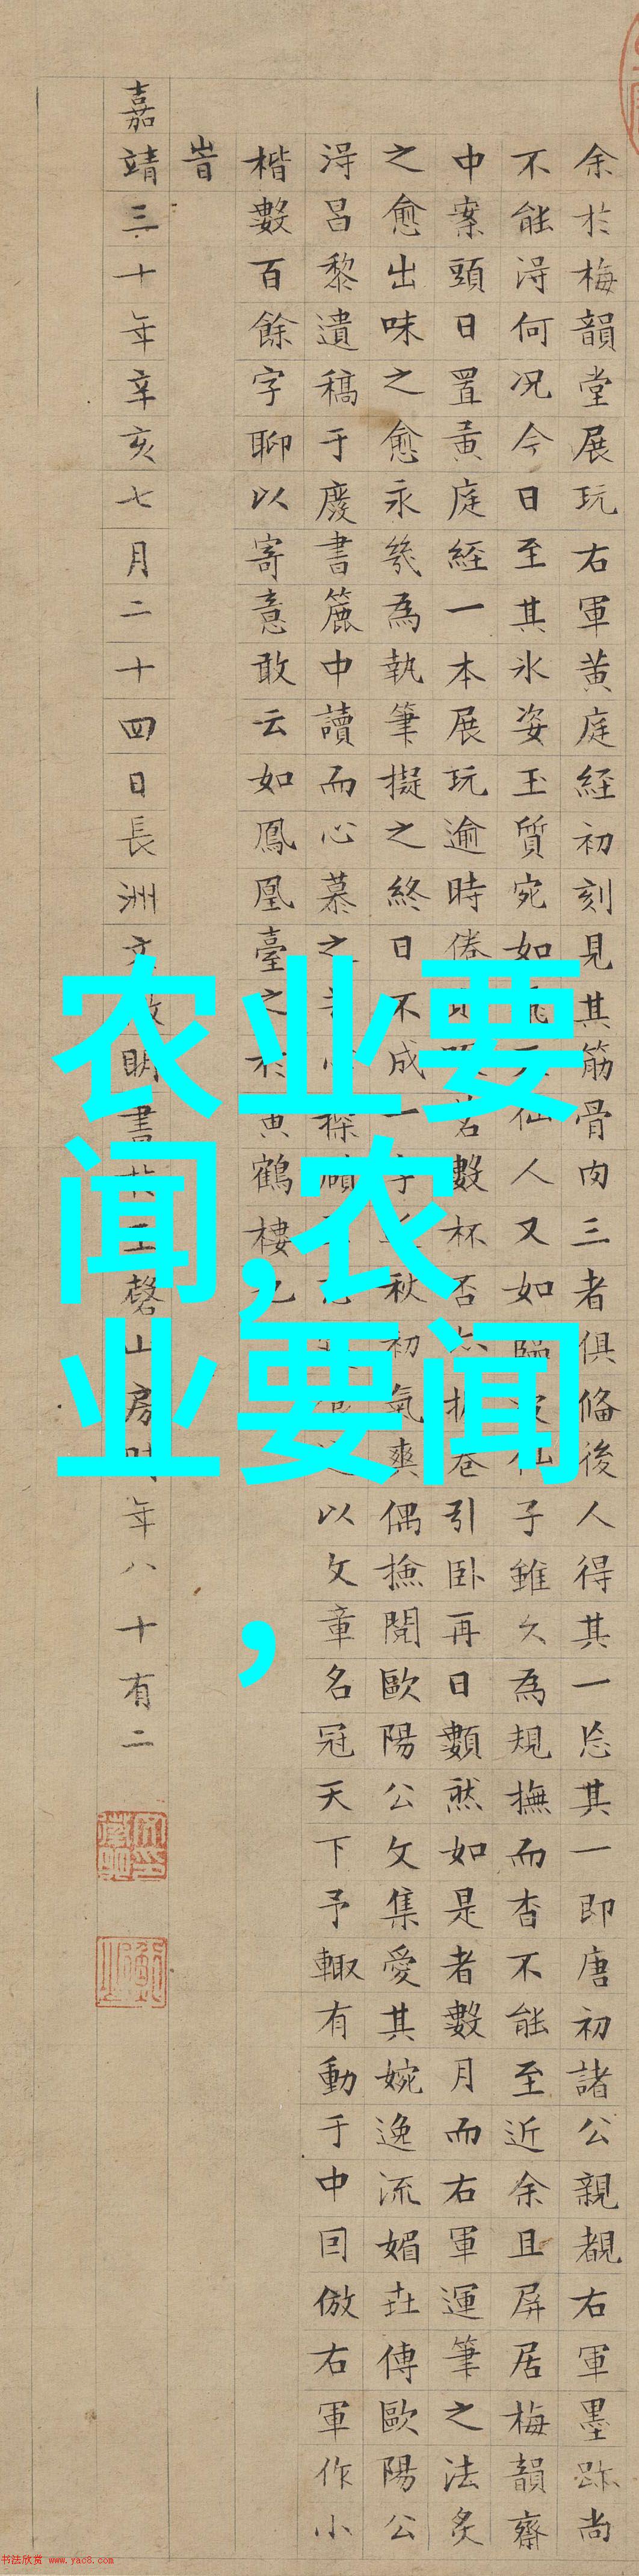 余於梅韻堂展玩右軍黄庭經初刻見其筋骨肉三者俱俻後人得其一忘其一即唐初諸公親覩右軍墨跡尚
不能淂何况今日至其氷姿玉質宛如仙人又如仙子雖久為規撫而杳不能至近余且屏居梅韻齋
中案頭日置黄庭經一本展玩逾時倦茗數杯否卷引卧再日數然如是者數月而右軍運筆之法炙
之愈出味之愈永幾為執筆擬之終日不成一秋初氣爽偶撿閱歐陽公文集愛其婉逸流媚茲傳歐陽公
淂吕黎遺稿于廢書簏中讀而心慕之以文章名冠天下予輙有動于中囙倣右軍作小
楷數百餘字聊以寄意敢云如鳳凰臺之於黄鶴樓也
旹
嘉靖三十年辛亥七月二十四日長洲文徵明書於玉磬山房時年八十有二
农业要
闻,农
业要闻
,
书法欣赏 www.yac8.com